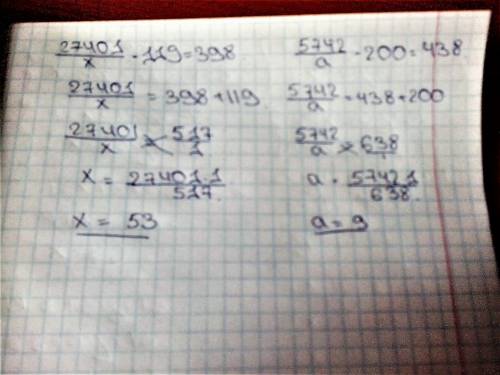 27401/x - 119 = 398
27401/x = 398 + 119
27401/x = 517/1
x = 27401·1/517
x = 53
5742/a - 200 = 438
5742/a = 438 + 200
5742/a = 638/1
a = 5742·1/638
a = 9